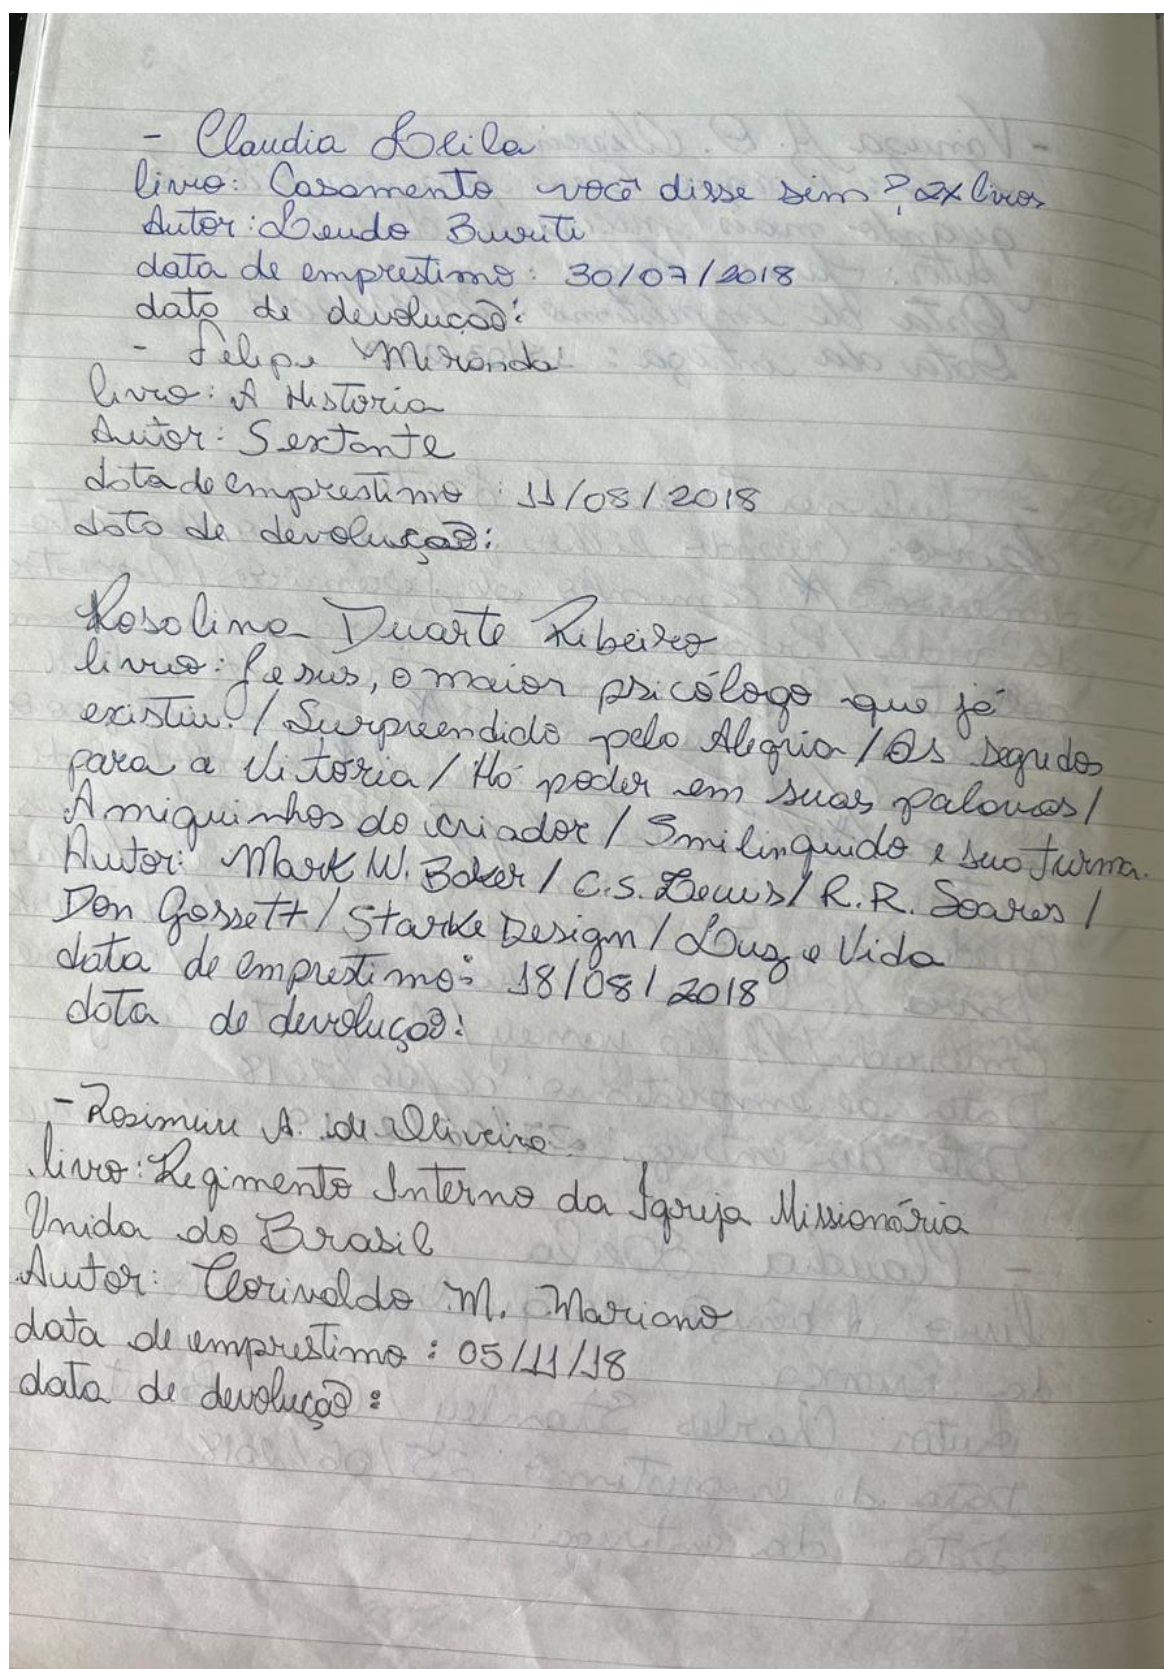 - Claudia Leila
livro: Casamento você disse sim? 2x livros
Autor: Leudo Buriti
data de emprestimo: 30/07/2018
data de devolução:
- Felipe Miranda
livro: A Historia
Autor: Sextante
data de emprestimo: 11/08/2018
data de devolução:
Rosolina Duarte Ribeiro
livro: Jesus, o maior psicólogo que já
existiu. / Surpreendido pelo Alegria / Os segredos
para a Vitória / Há poder em suas palavras /
Amiguinhos do criador / Smilinguido e sua turma.
Autor: Mark W. Baker / C.S. Lewis / R.R. Soares /
Don Gossett / Starke Design / Luz e Vida
data de emprestimo: 18/08/2018
data de devolução:
- Rosimere A. de Oliveira
livro: Regimento Interno da Igreja Missionária
Unida do Brasil
Autor: Clorivaldo M. Mariano
data de emprestimo: 05/11/18
data de devolução: